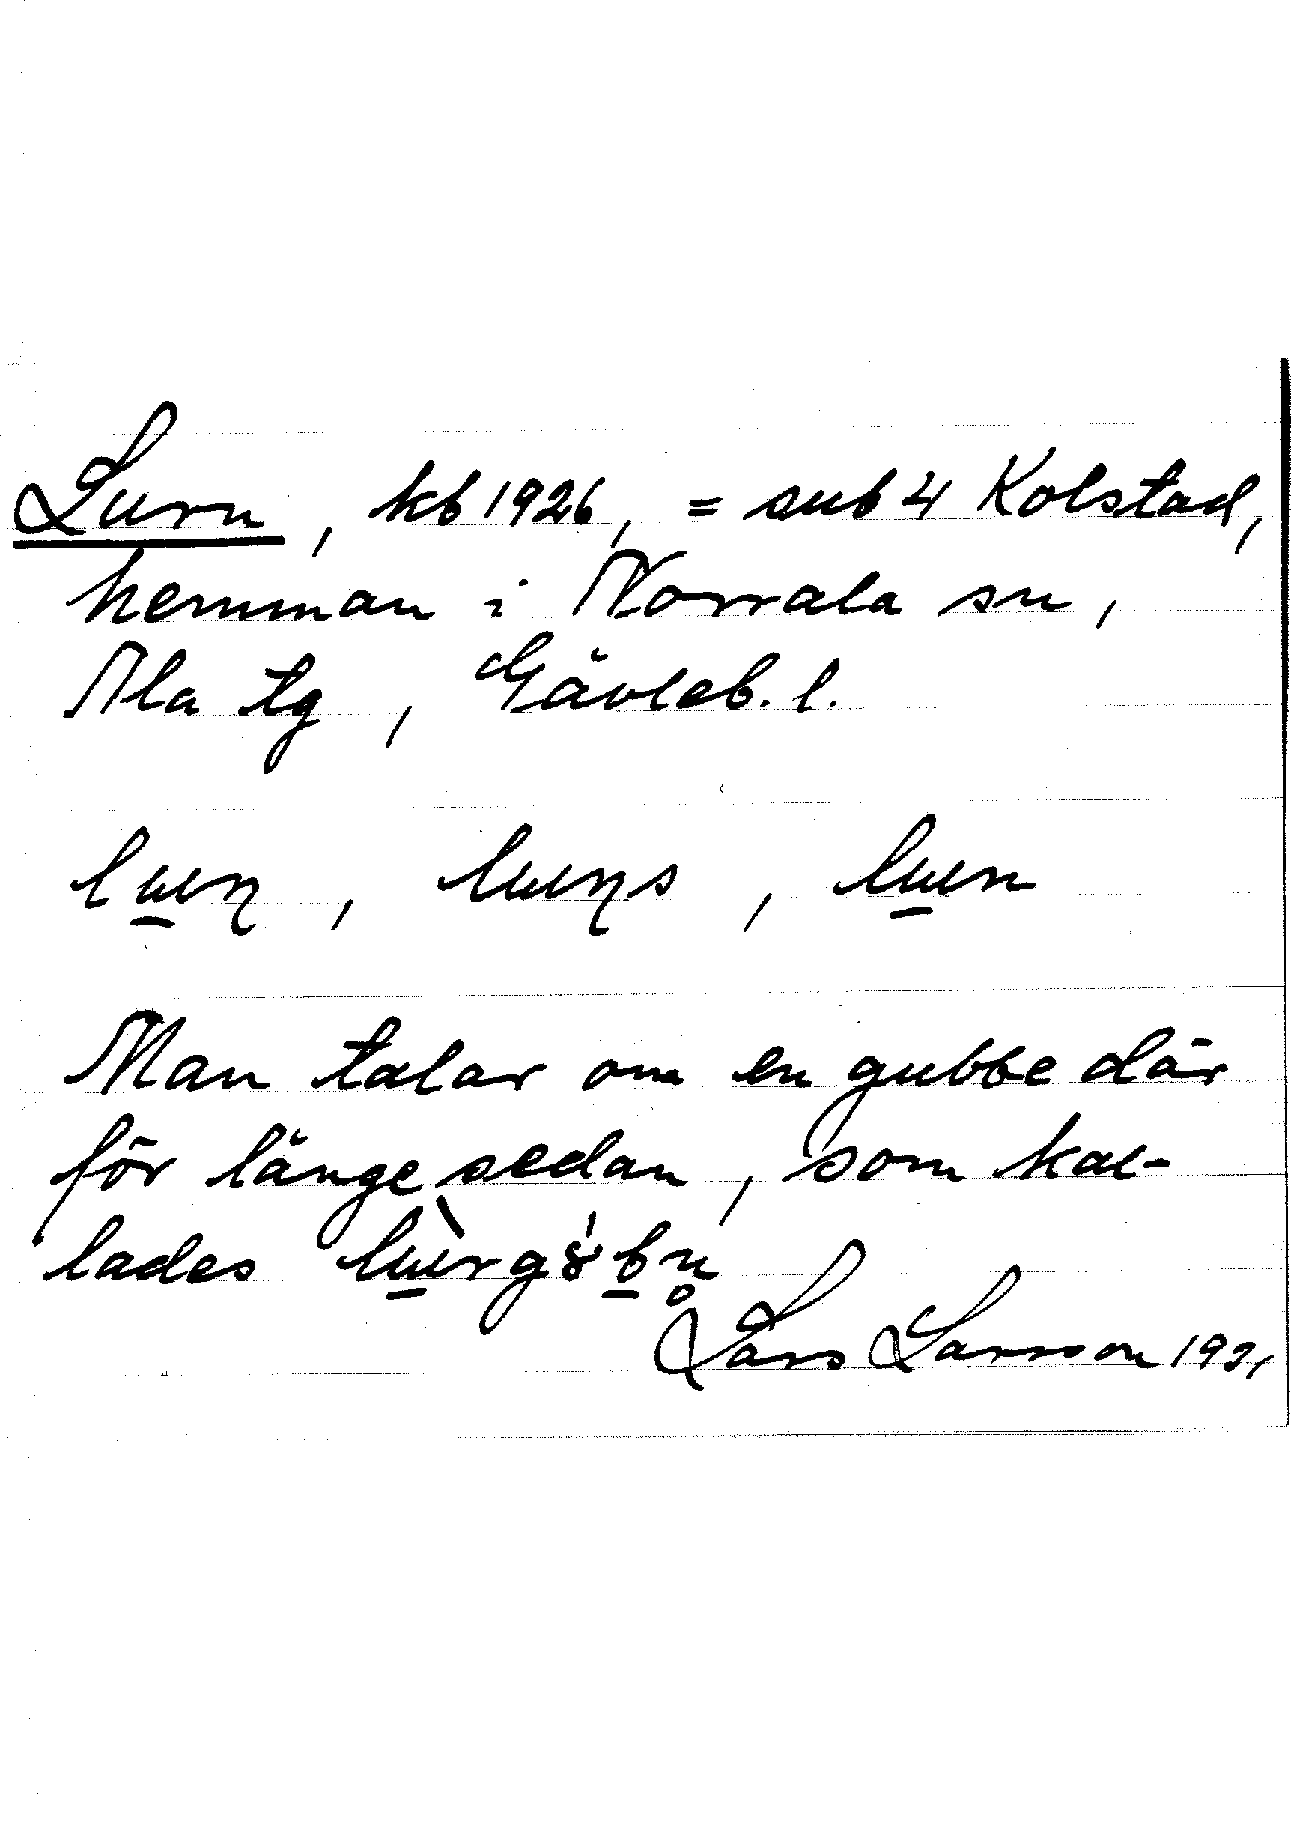 Lurn, kb 1926, = sub 4 Kolstad,
hemman i Norrala sn,
Ala tg, Gävleb. l.
Man talar om en gubbe där
för länge sedan, som kal-
lades
Lars Larsson 1931